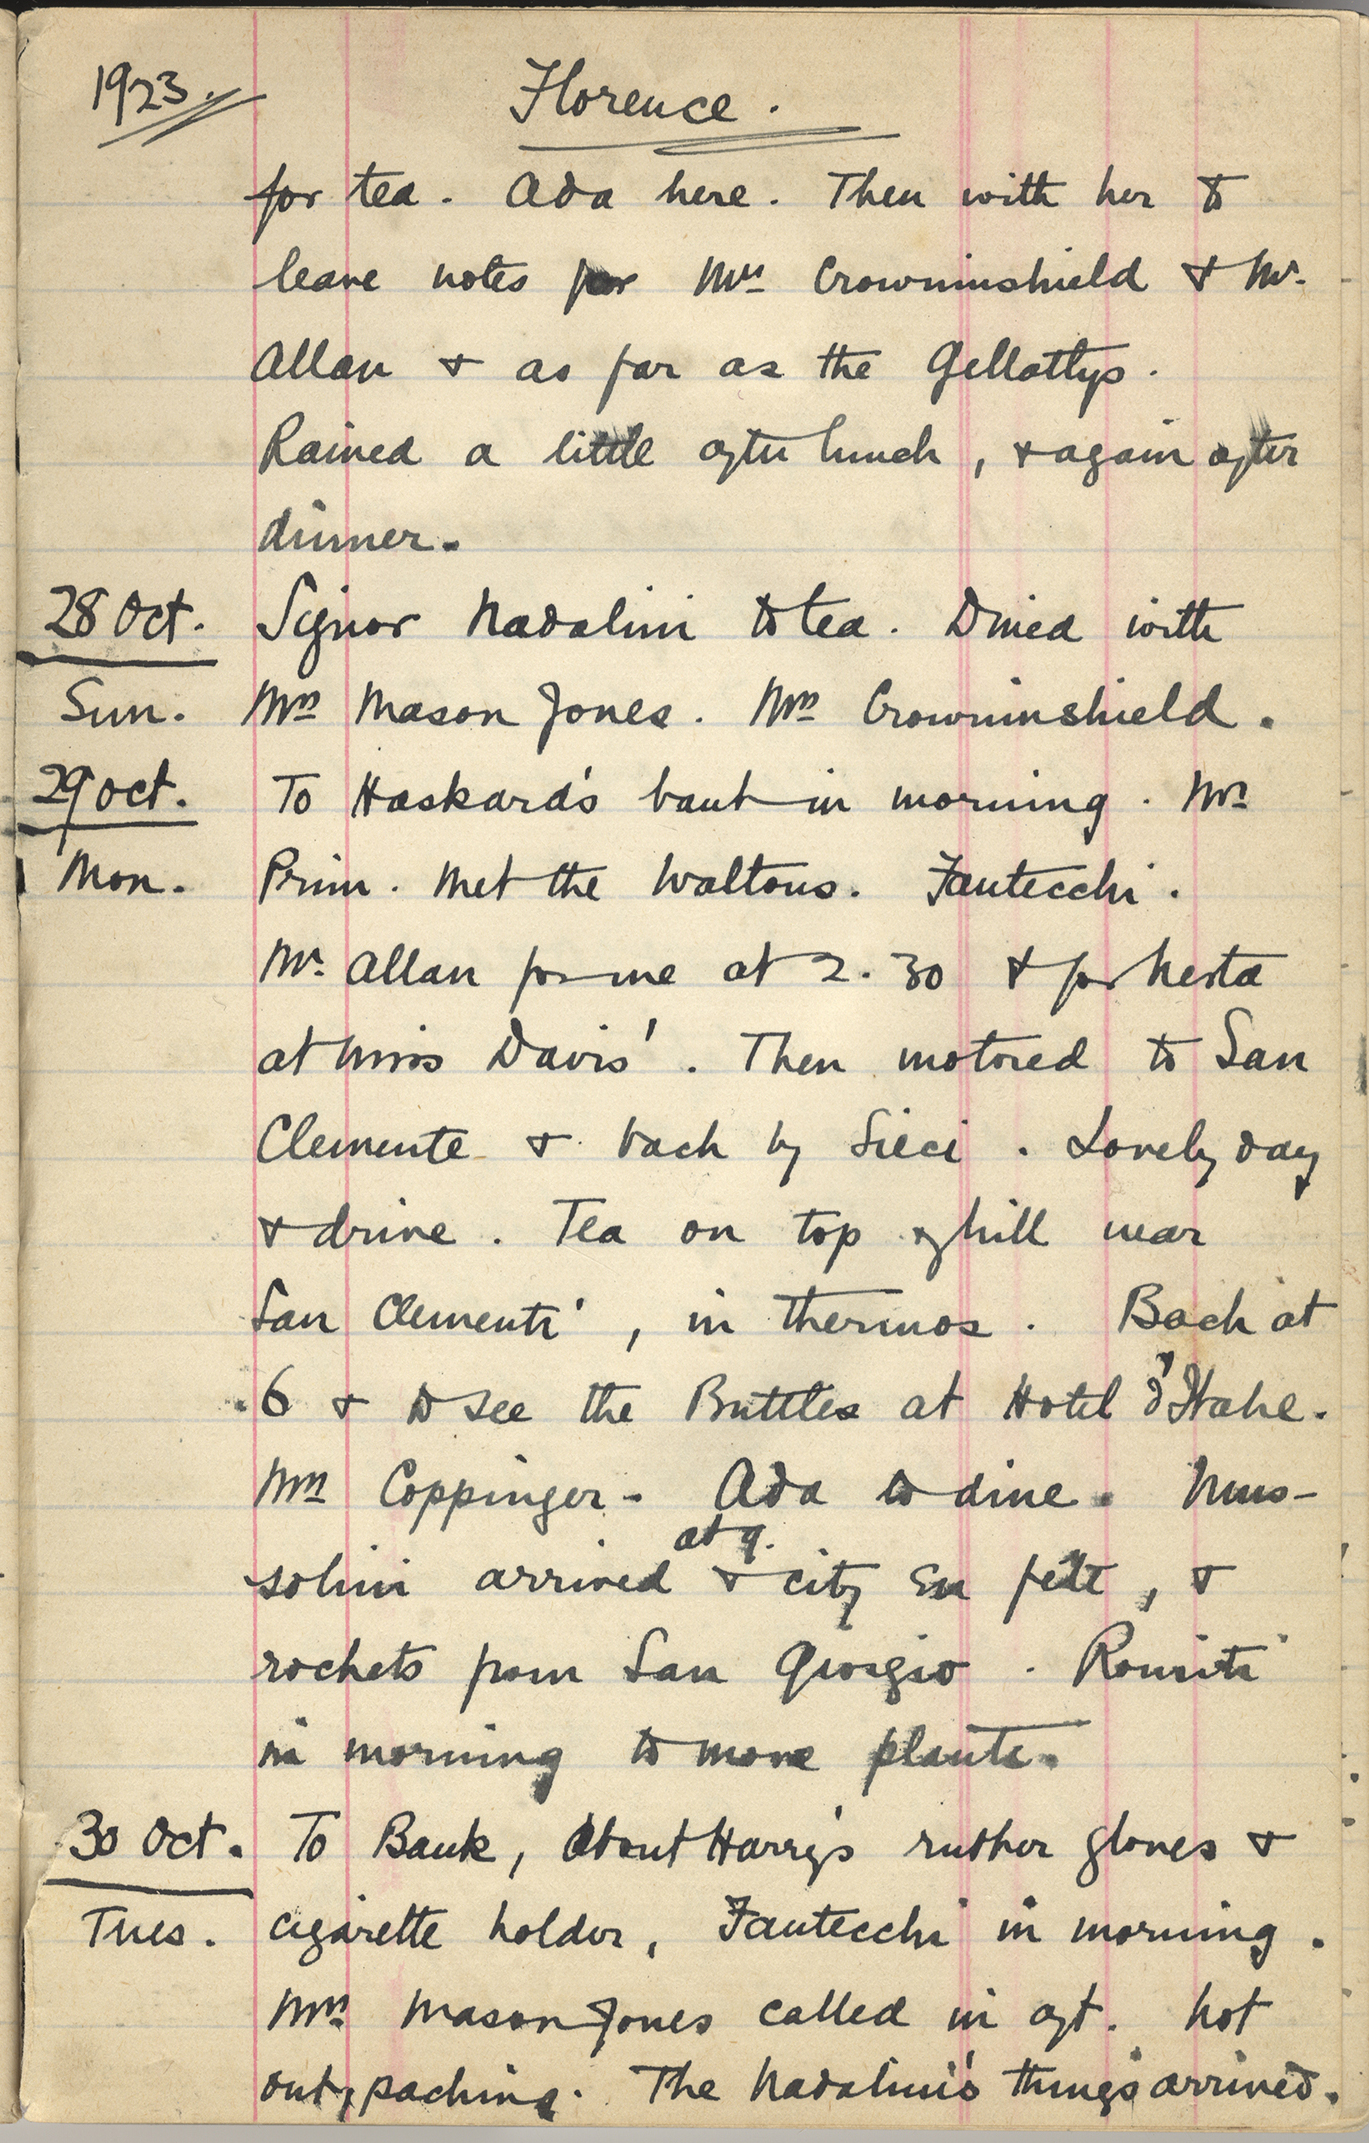 1923. Florence.
for tea. Ada here. Then with her to
leave notes for Mrs Crowninshield & Mr.
Allan & as far as the Gellattys.
Rained a little after lunch, & again after
dinner.
28 Oct. Signor Nadalini to tea. Dined with
Sun. Mrs Mason Jones. Mrs Crowninshield.
29 Oct. To Haskard's bank in morning. Mrs
Mon. Prim. Met the Waltons. Fantecchi.
Mr. Allan for me at 2.30 & for Nesta
at Miss Davis'. Then motored to San
Clemente & back by Sieci. Lovely day
& drive. Tea on top of hill near
San Clemente, in thermos. Back at
6 & to see the Buttles at Hotel d'Italie.
Mrs Coppinger. Ada to dine. Mus-
at 9.
solini arrived & city en fête, &
rockets from San Giorgio. Romiti
in morning to move plants.
30 Oct. To Bank, about Harry's rubber gloves &
Tues. cigarette holder, Fantecchi in morning.
Mrs. Mason Jones called in aft. Not
out, packing. The Nadalini's things arrived.